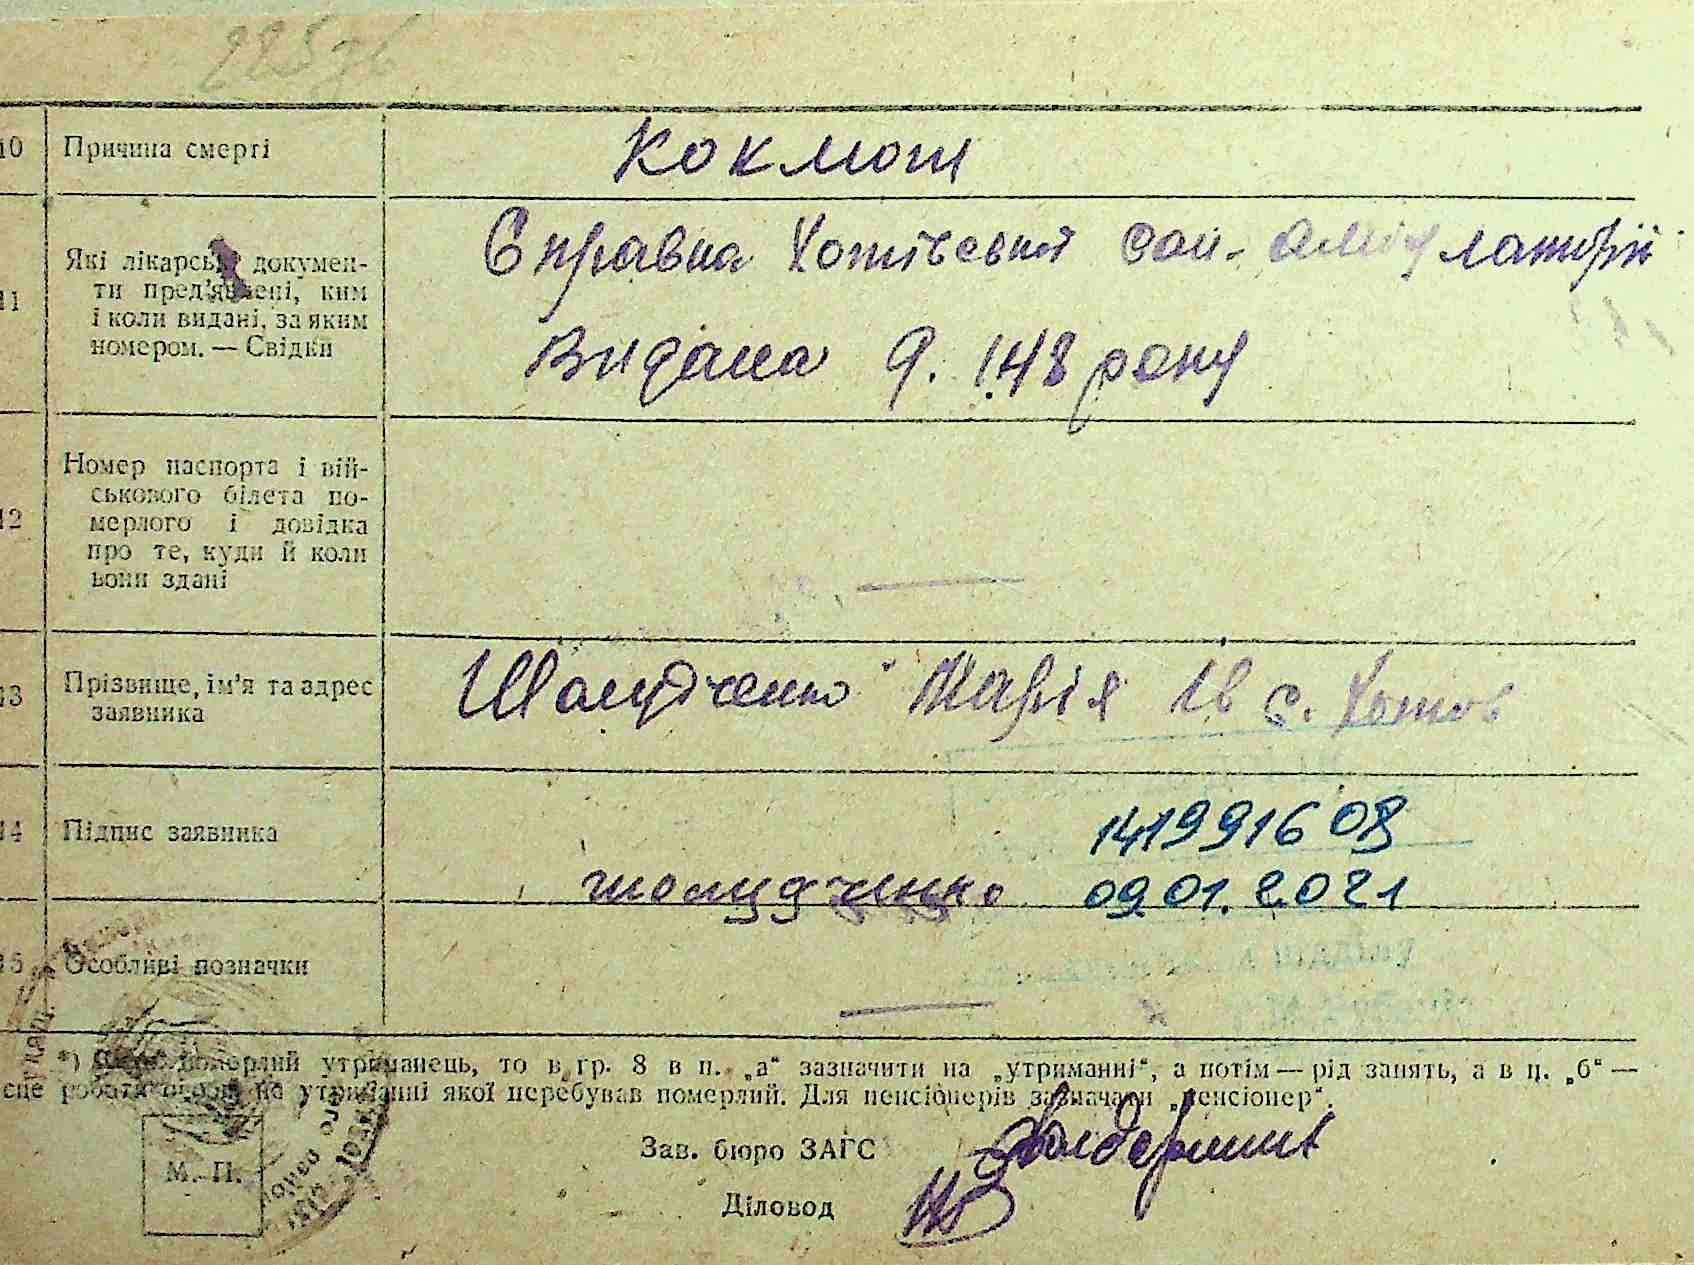 10 Причина смерті Коклюш
Справка Хотівської сан. амбулаторії
Які лікарські докумен-
ти пред'явлені, ким
11
і коли видані, за яким
номером. — Свідки
Видана 9. 148 року
Номер паспорта і вій-
ськового білета по-
12 мерлого і довідка
про те, куди й коли
вони здані
13 Прізвище, ім'я та адрес
заявника
Шолудченко Марія Ів с. Хотов
14 Підпис заявника
141991608
шолудченко 09.01.2021
15 Особливі позначки
*) померлий утриманець, то в гр. 8 в п. „а“ зазначити на „утриманні“, а потім — рід занять, а в п. „б“ —
сце роботи особи на утриманні якої перебував померлий. Для пенсіонерів зазначати „пенсіонер“.
Зав. бюро ЗАГС
М. П.
Діловод